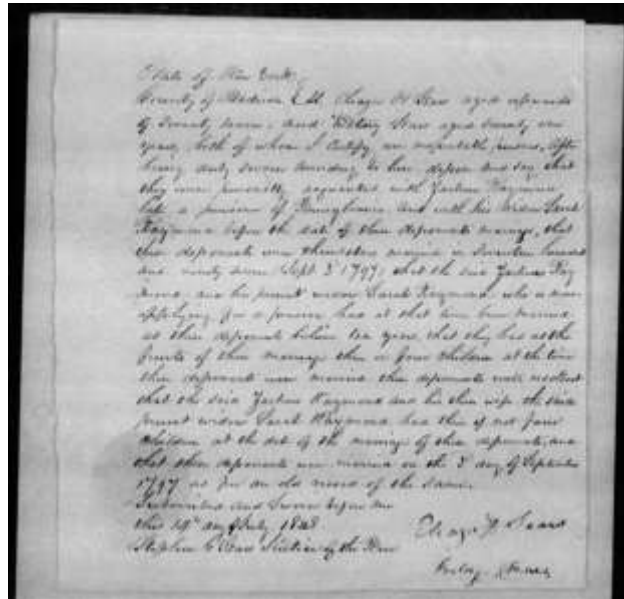 State of New York
County of Madison S.S. Sears aged upwards
of seventy seven, and Sears aged seventy one
years, both of whom I certify, are respectable persons, after
being duly sworn according to law depose and say that
they were personally acquainted with Raymond
late a pensioner of Pennsylvania and with his widow Sarah
Raymond before the date of these deponents marriage, that
these deponents were themselves married in Seventeen hundred
and ninety seven (Sept. 3 1797) that the said Ray
mond, and his present widow Sarah Raymond, who is now
applying for a pension had at that time been married,
as these deponents believe ten years, that they had as the
fruits of their marriage three or four children at the time
these deponents were married these deponents well recollect
that the said Raymond and his then wife the said
present widow Sarah Raymond had three if not four
children at the date of the marriage of these deponents, and
that these deponents were married on the 3 day of September
1797 as per an old record of the same.
Subscribed and Sworn before me
this 19th day of July 1848
Stephen Justice of the Peace
Sears